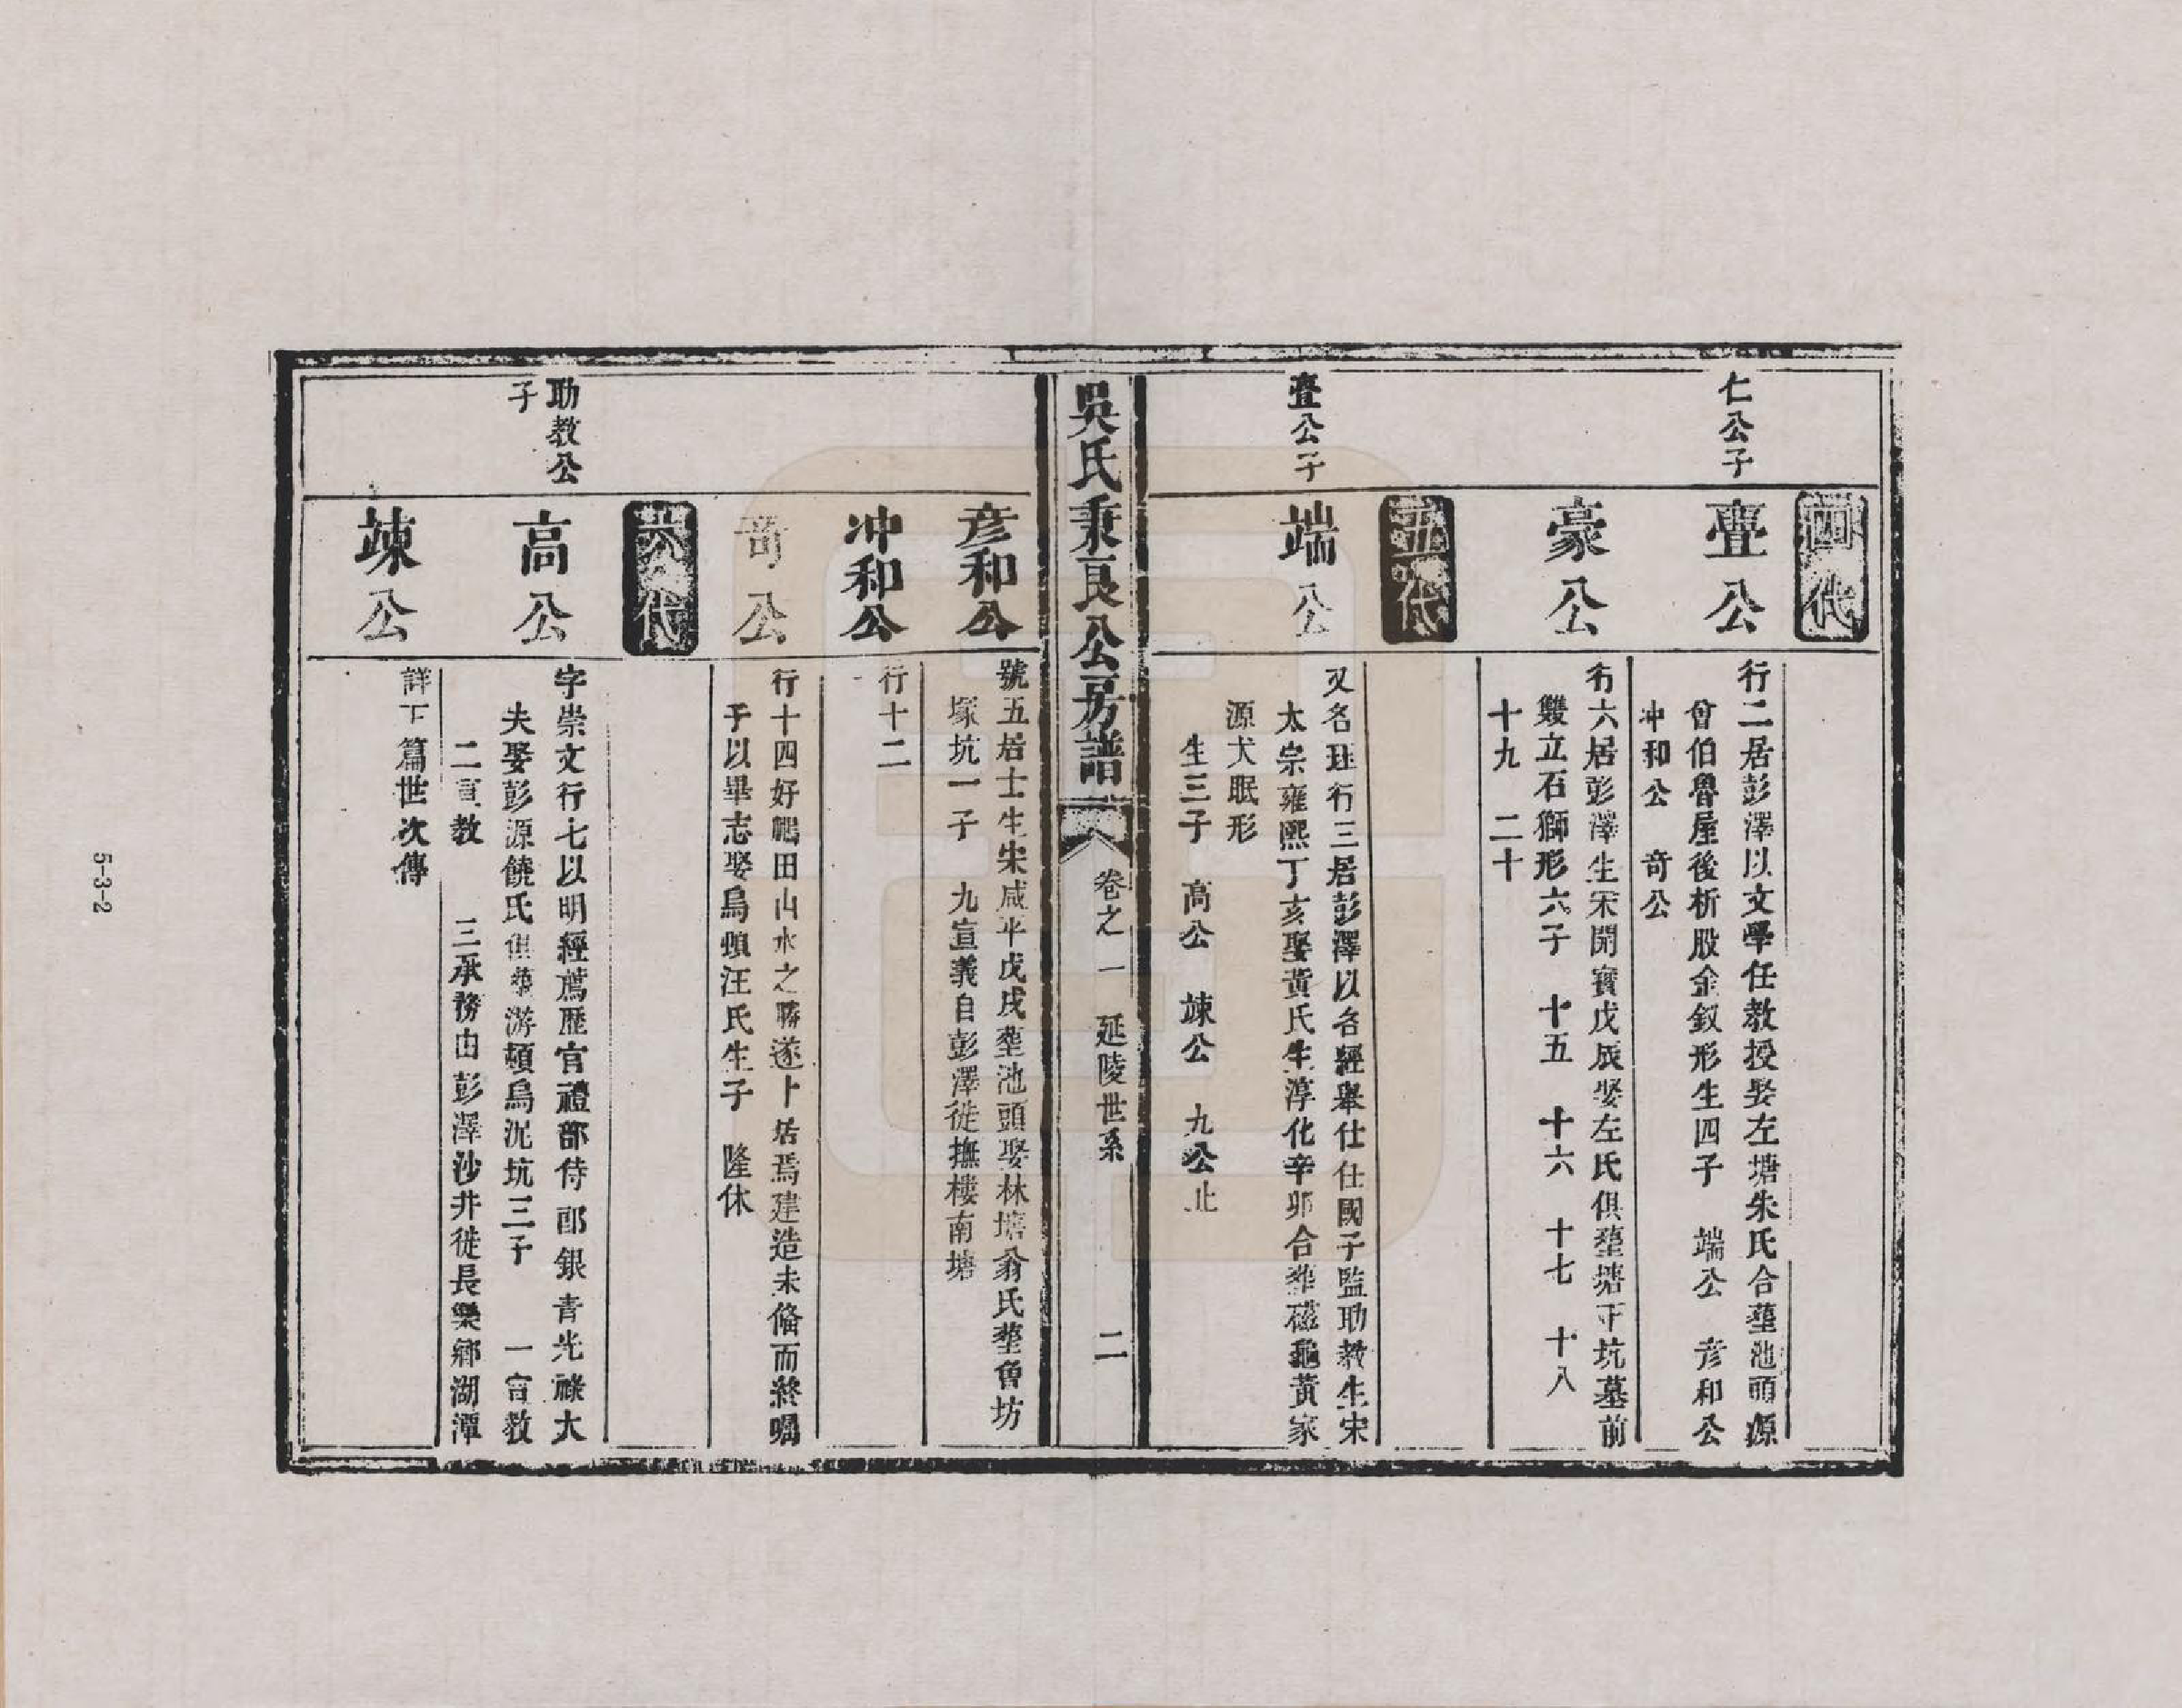 四代
仁公子
亹公
行二居彭澤以文學任教授娶左塘朱氏合塟池頭源
曾伯魯屋後析股金釵形生四子　端公　彦和公
冲和公　竒公
豪公
行六居彭澤生宋開寳戊辰娶左氏俱塟塘下坑墓前
雙立石獅形六子　十五　十六　十七　十八
十九　二十
五代
亹公子
端公
又名珪行三居彭澤以名經舉仕任國子監助教生宋
太宗雍熙丁亥娶黃氏生淳化辛卯合塟磁龜黃家
源犬眠形
生三子　高公　竦公　九公止
吳氏秉良公房譜
卷之一　延陵世系
二
彦和公
號五居士生宋咸平戊戌塟池頭娶林塘翁氏塟魯坊
塚坑一子　九宣義自彭澤徙撫樓南塘
冲和公
行十二
竒公
行十四好鵬田山水之勝遂卜居焉建造未俻而終囑
子以畢志娶烏頓汪氏生子　隆休
六代
助教公
子
高公
字崇文行七以明經薦歷官禮部侍郎銀青光祿大
夫娶彭源饒氏俱塟游頓烏泥坑三子　一宣教
二宣教　三承務由彭澤沙井徙長樂鄉湖潭
竦公
詳下篇世次傳
5-3-2